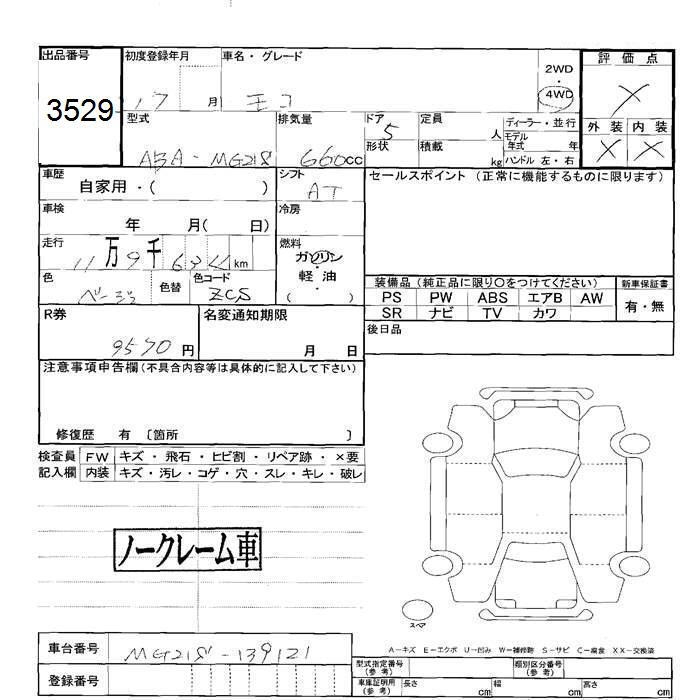 出品番号 初度登録年月 車名・グレード 2WD ・ 4WD 評価点
3529 17 月 モコ ×
型式 排気量 ドア 5 形状 定員 人 積載 kg ディーラー・並行 モデル年式 年 ハンドル 左・右 外装 内装
ABA-MG21S 660cc × ×
車歴 自家用・( ) シフト AT セールスポイント (正常に機能するものに限ります)
車検 年 月( 日) 冷房
走行 11万9千6 km 燃料 ガソリン・軽油 ( )
色 ベージュ 色替 色コード ZCS
装備品(純正品に限り○をつけてください) 新車保証書
PS PW ABS エアB AW 有・無
SR ナビ TV カワ
R券 9570円 名変通知期限 月 日 後日品
注意事項申告欄(不具合内容等は具体的に記入して下さい)
修復歴 有 〔箇所 〕
検査員 FW キズ・飛石・ヒビ割・リペア跡・×要
記入欄 内装 キズ・汚レ・コゲ・穴・スレ・キレ・破レ
ノークレーム車
スペア
A-キズ E-エクボ U-凹み W-補修跡 S-サビ C-腐食 XX-交換済
車台番号 MG21S-139121
型式指定番号(参考) 類別区分番号(参考)
登録番号
車庫証明用(参考) 長さ cm 幅 cm 高さ cm